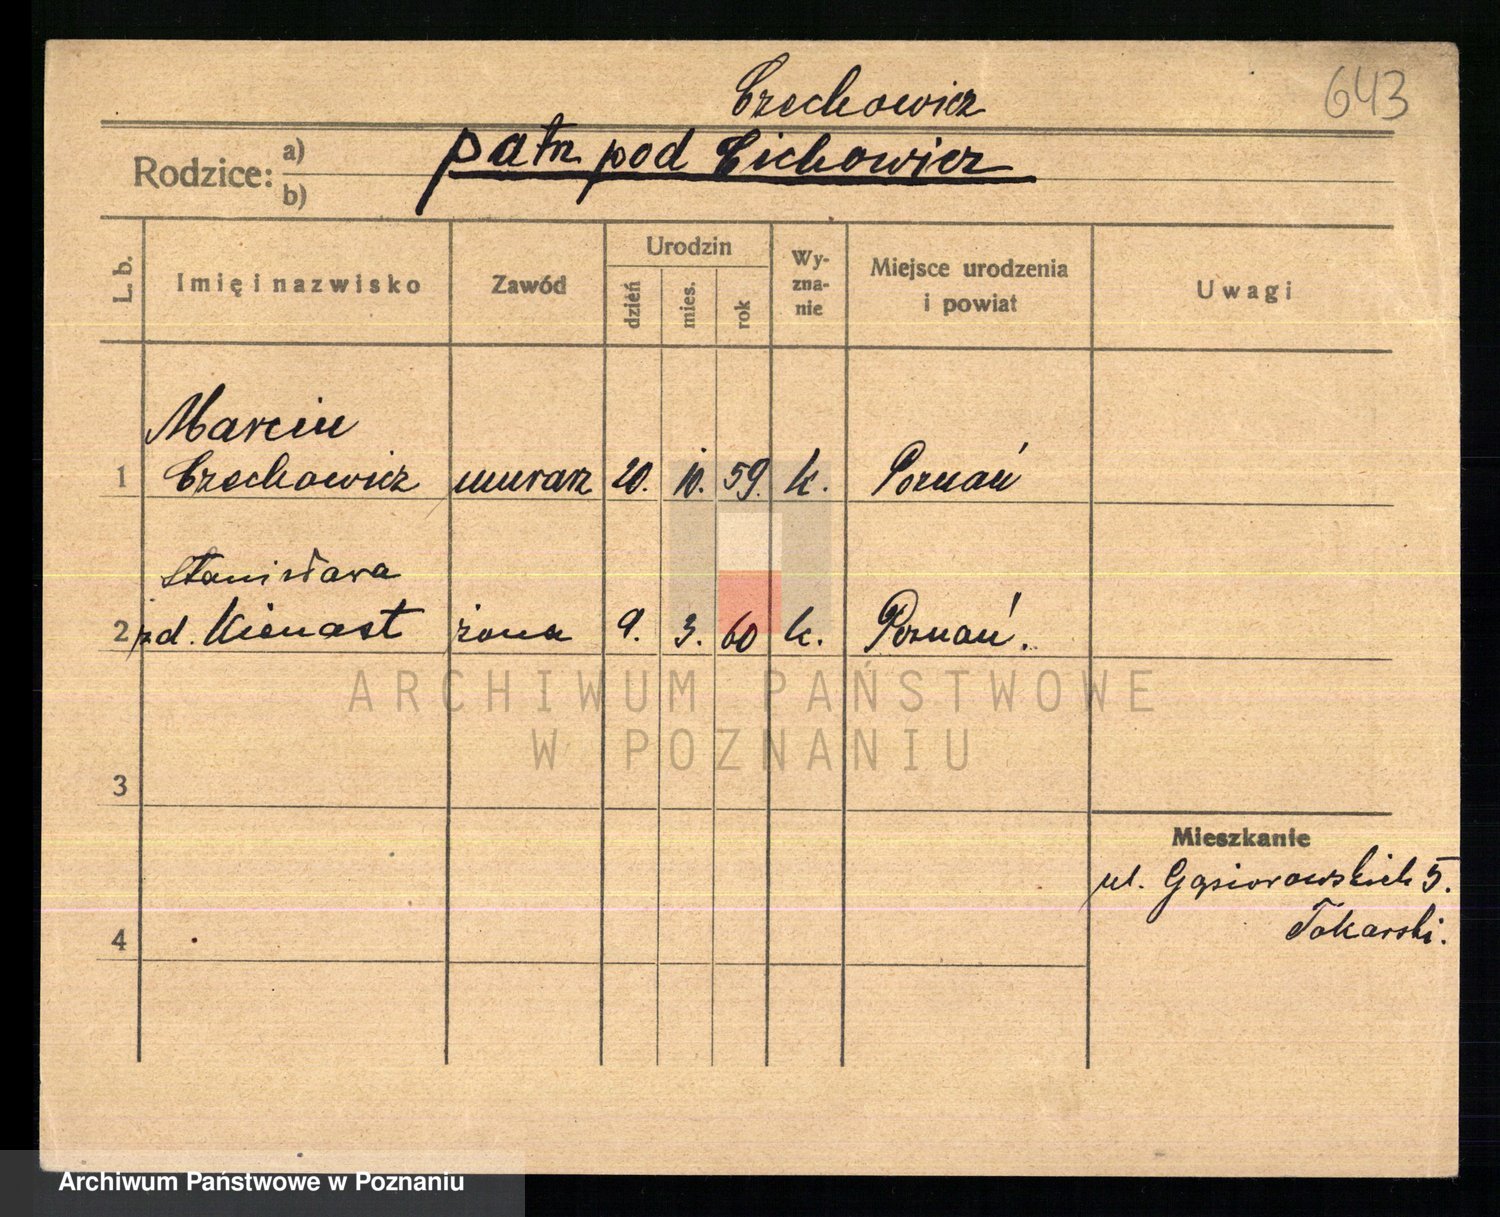 643
Czechowicz
Rodzice: a) b)
patrz pod Cichowicz
L. b.
Imię i nazwisko
Zawód
Urodzin
dzień
mies.
rok
Wy-
zna-
nie
Miejsce urodzenia
i powiat
Uwagi
Marcin
1 Czechowicz murarz 20. 10. 59. k. Poznań
Stanisława
2 zd. Kienast żona 9. 3. 60 k. Poznań.
ARCHIWUM PAŃSTWOWE
W POZNANIU
3
Mieszkanie
ul. Gąsiorowskich 5.
Tokarski.
4
Archiwum Państwowe w Poznaniu